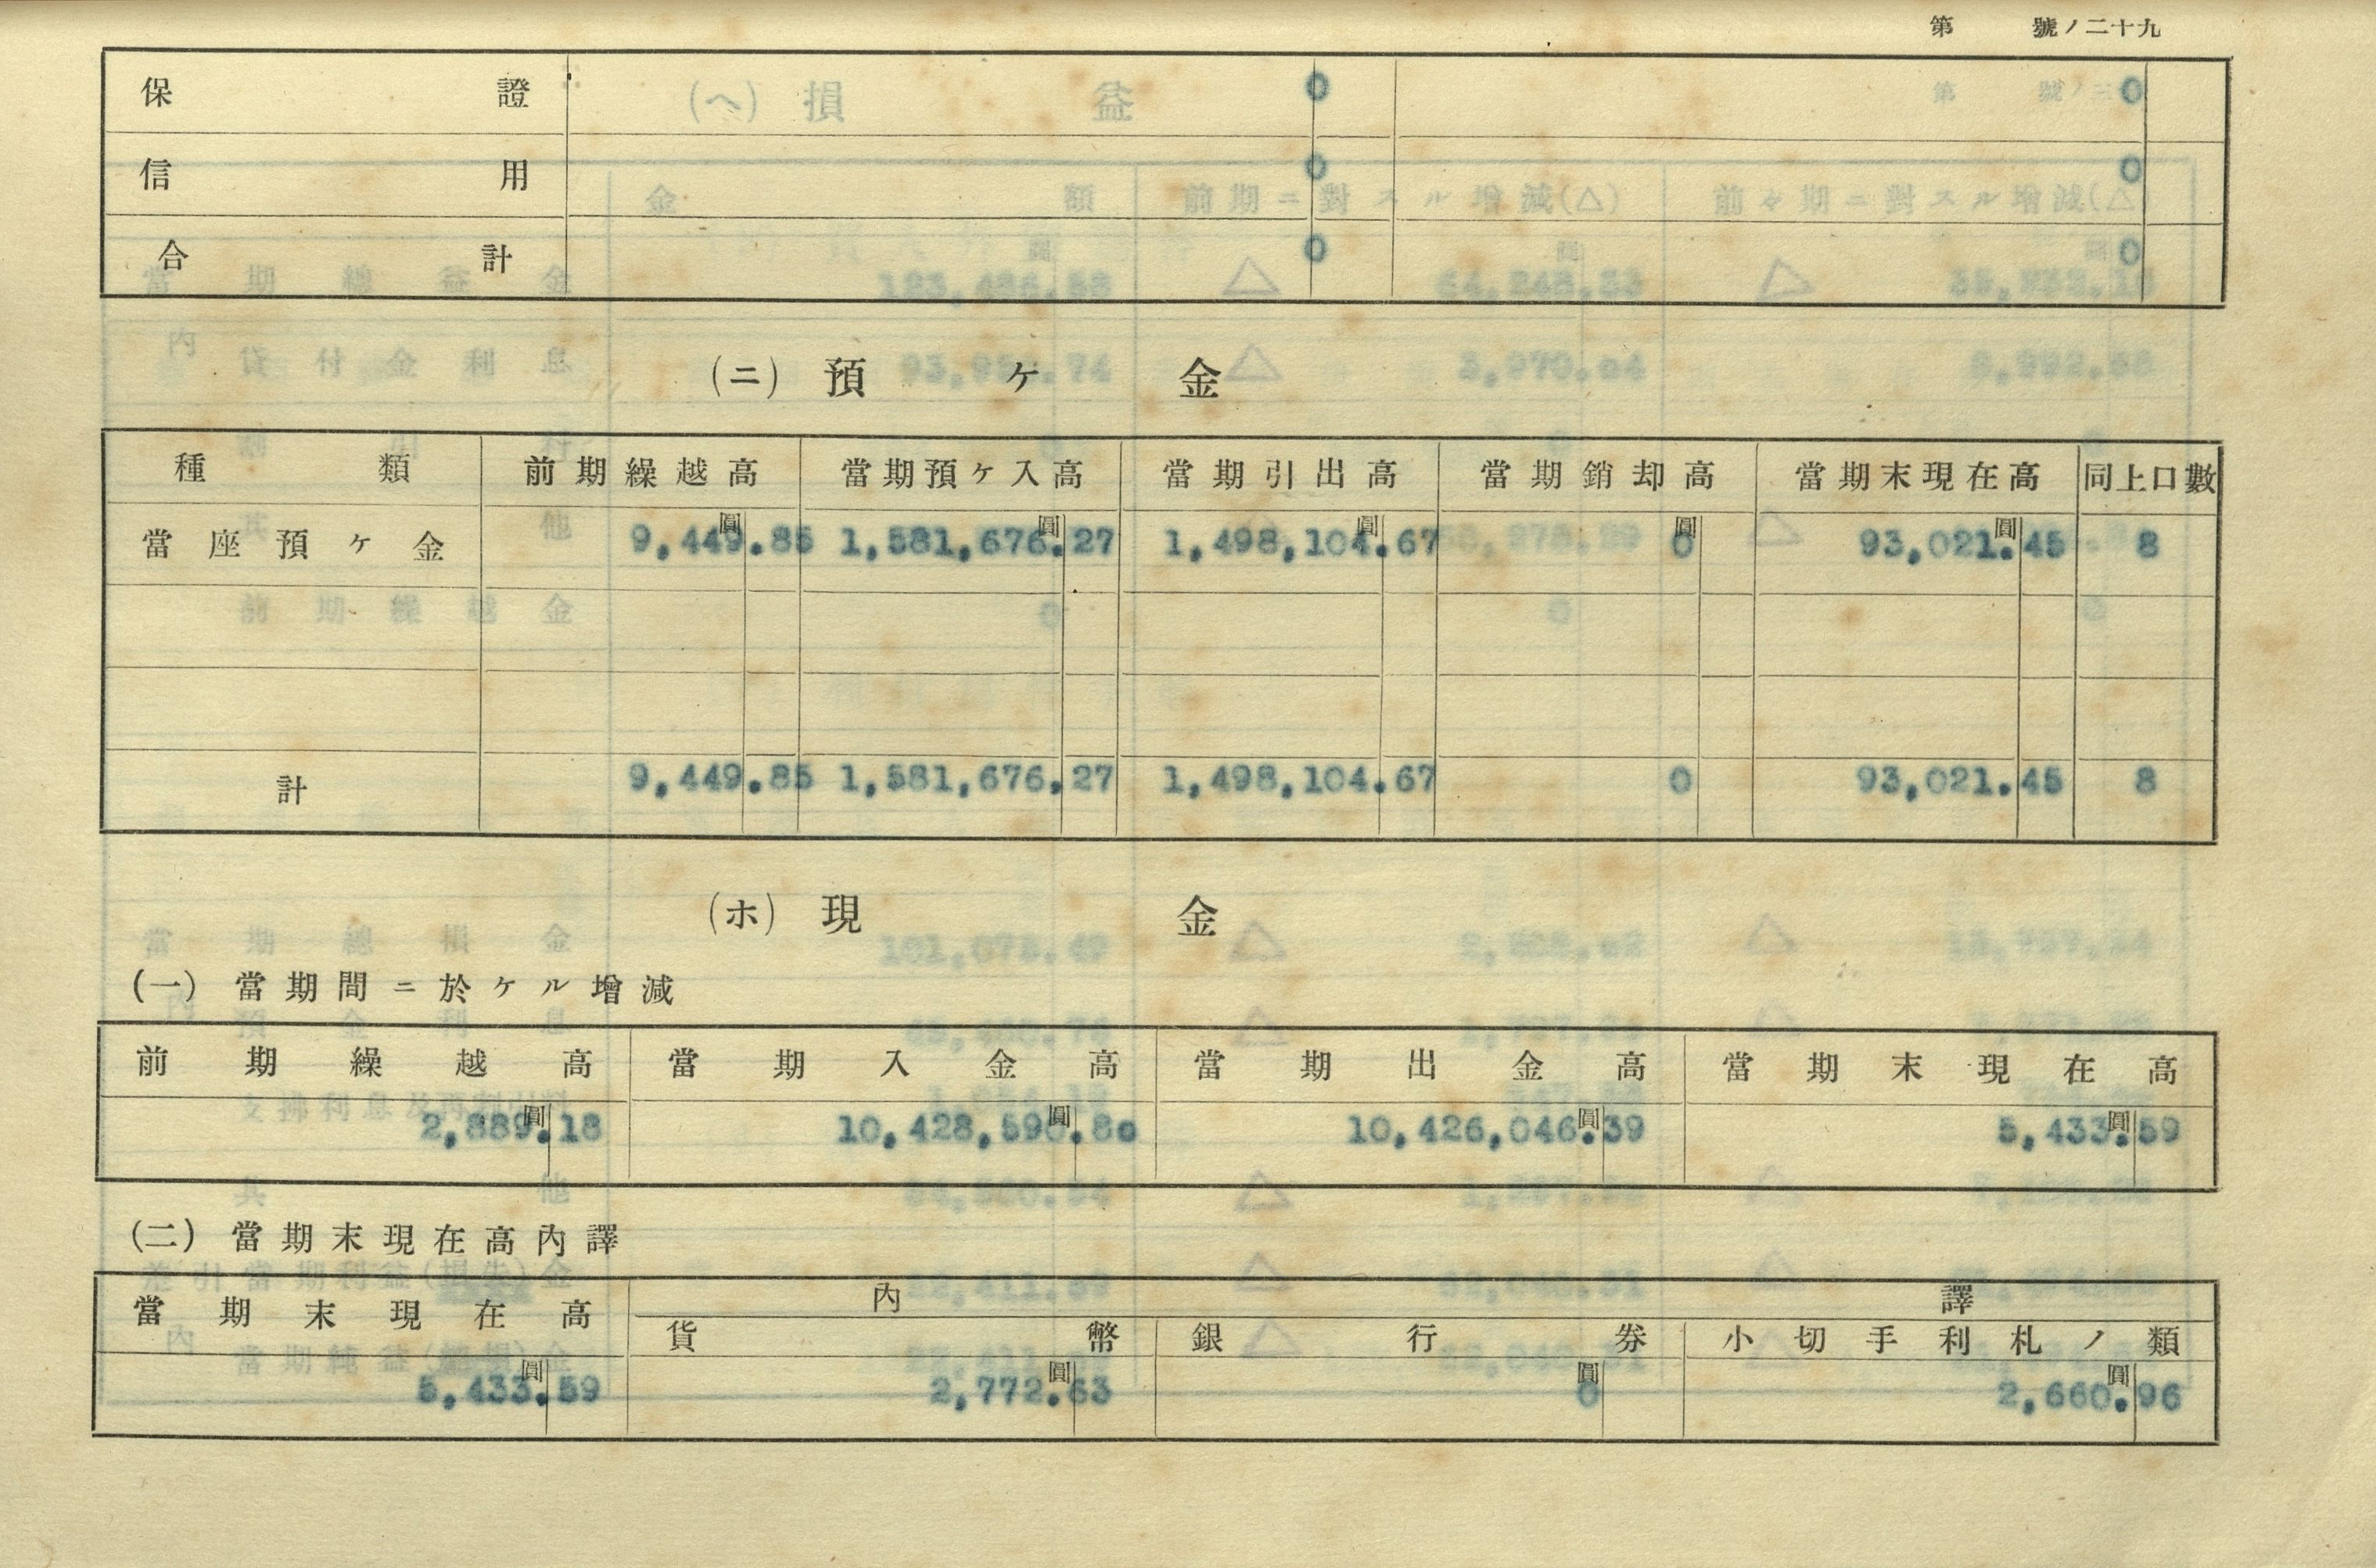 第　號ノ二十九
保證 0 0
信用 0 0
合計 0 0
(ニ) 預ケ金
種類 前期繰越高 當期預ケ入高 當期引出高 當期銷却高 當期末現在高 同上口數
圓 圓 圓 圓 圓
當座預ケ金 9,449.85 1,581,676.27 1,498,104.67 0 93,021.45 8
計 9,449.85 1,581,676.27 1,498,104.67 0 93,021.45 8
(ホ) 現金
(一) 當期間ニ於ケル增減
前期繰越高 當期入金高 當期出金高 當期末現在高
圓 圓 圓 圓
2,889.18 10,428,590.80 10,426,046.39 5,433.59
(二) 當期末現在高內譯
當期末現在高 內譯
貨幣 銀行券 小切手利札ノ類
圓 圓 圓 圓
5,433.59 2,772.63 0 2,660.96